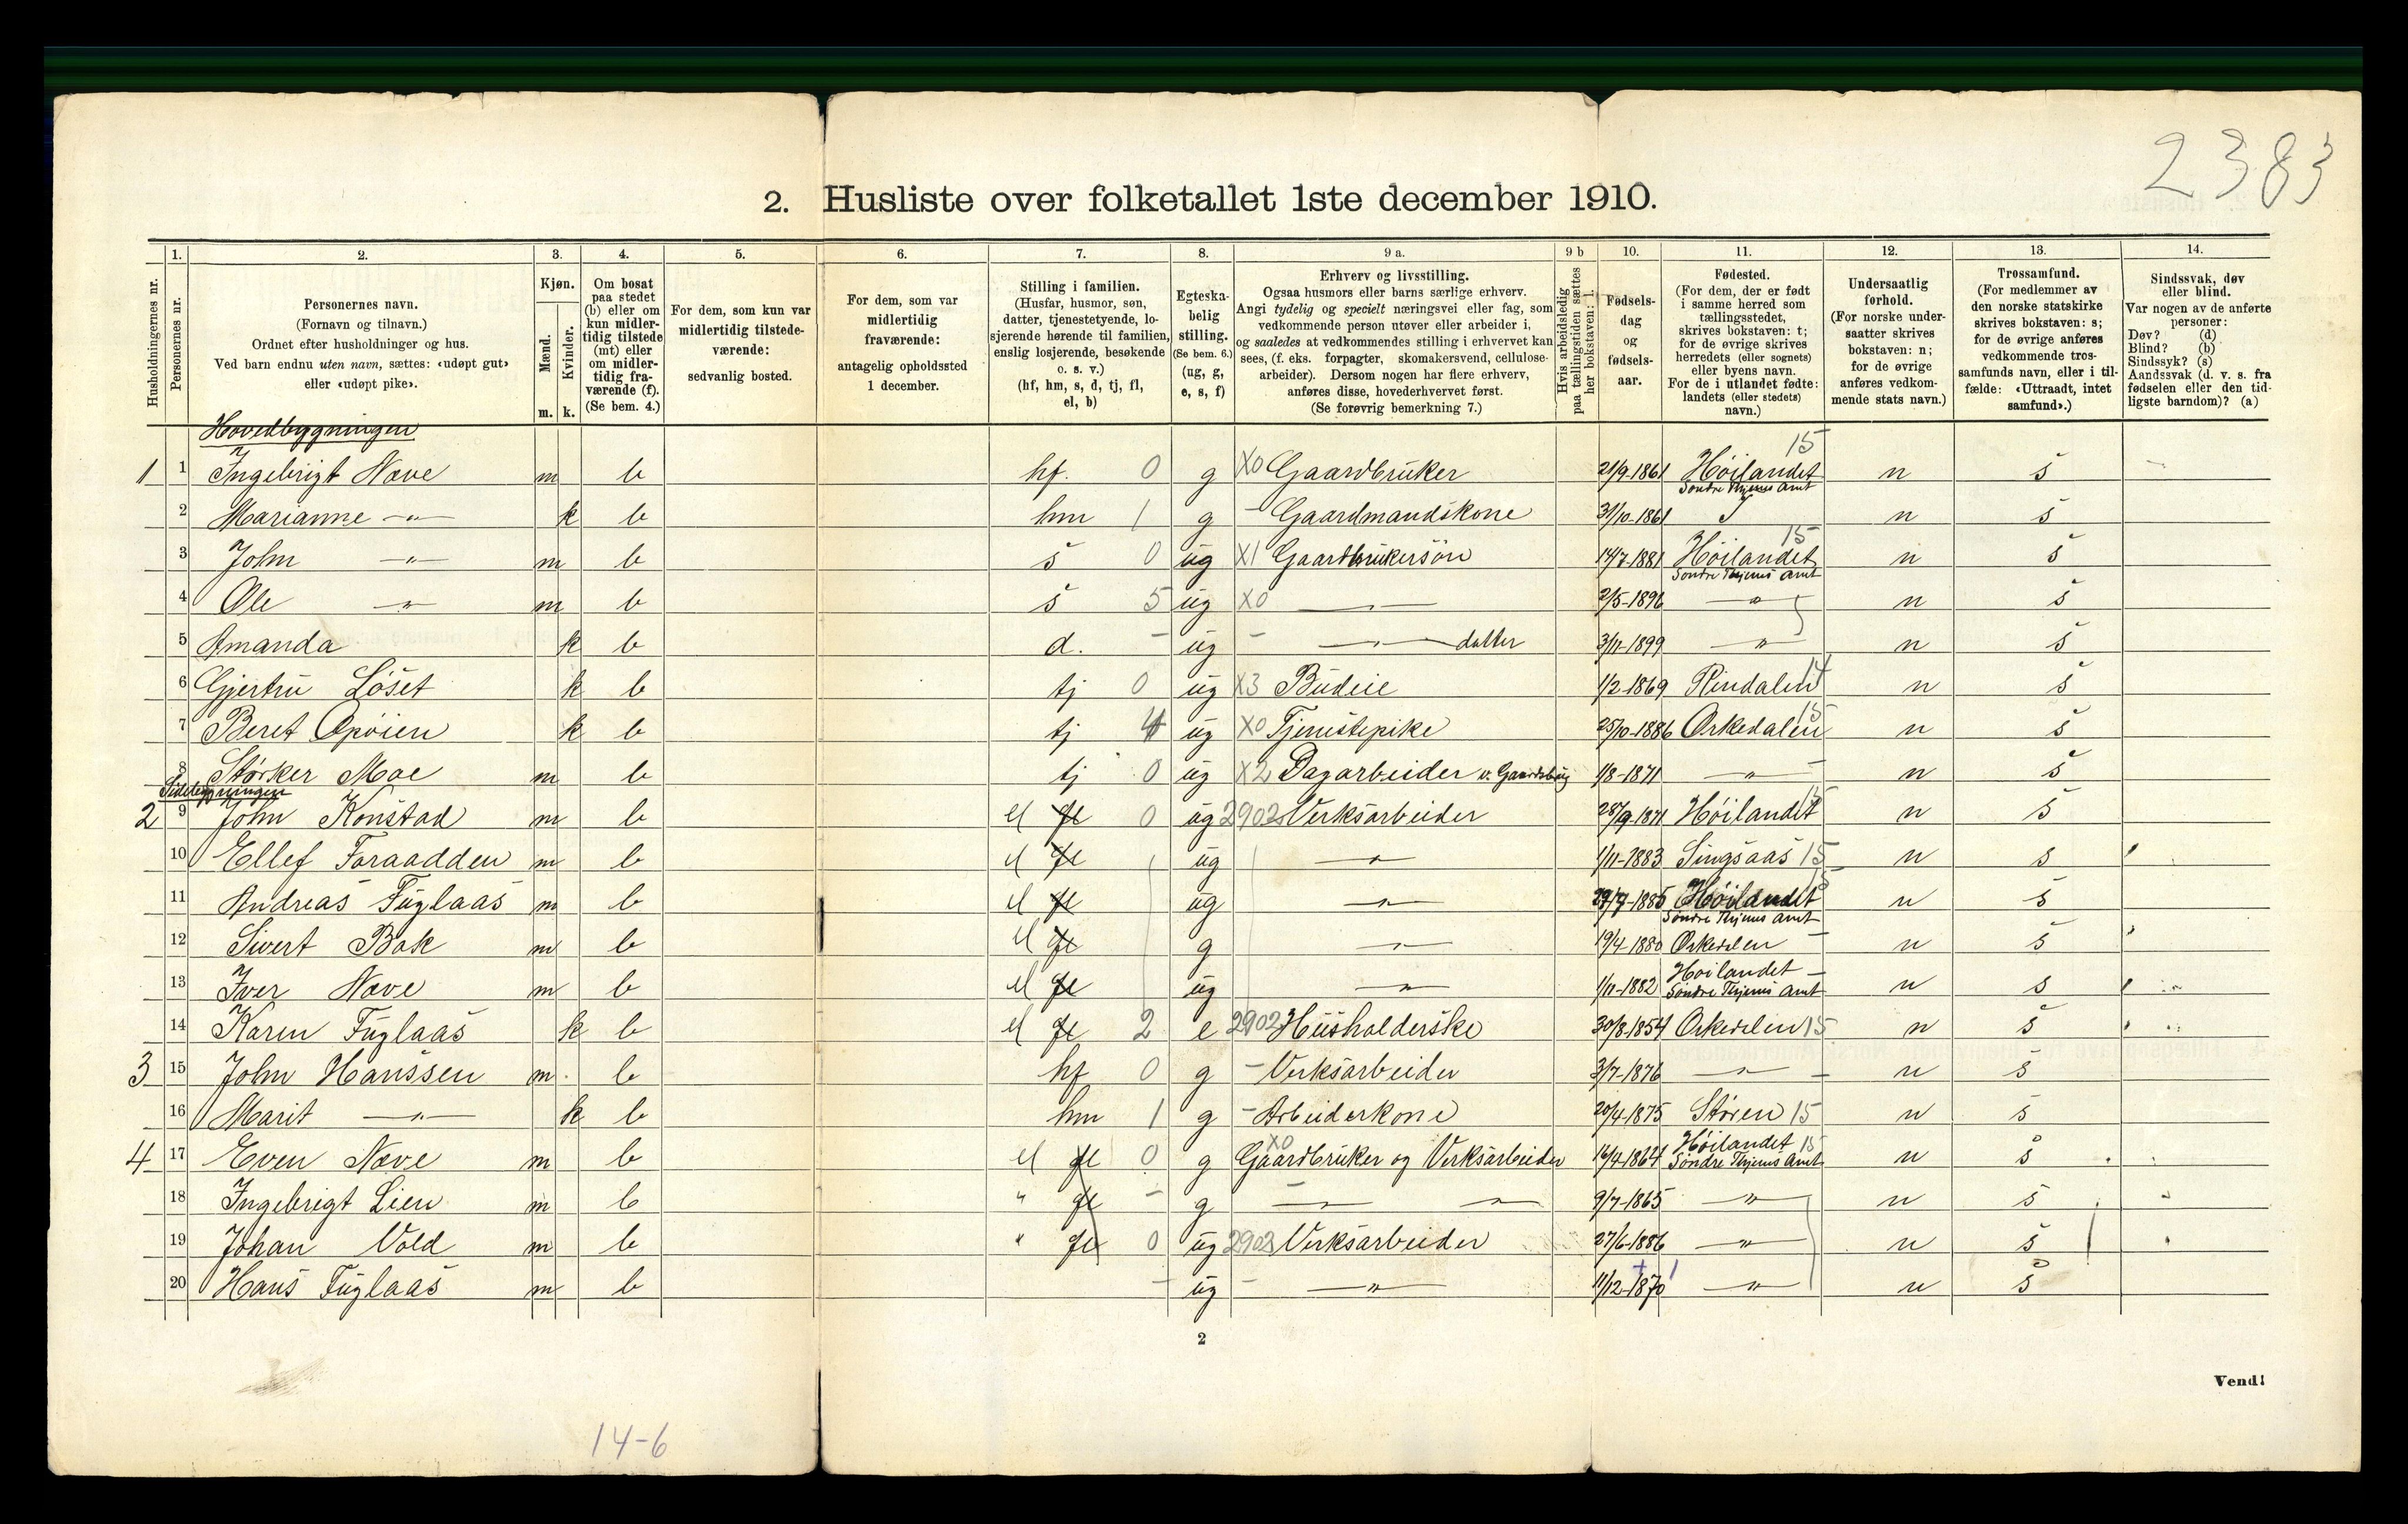 2383
2. Husliste over folketallet 1ste december 1910.
Husholdningernes nr.
1. Personernes nr.
2. Personernes navn.
(Fornavn og tilnavn.)
Ordnet efter husholdninger og hus.
Ved barn endnu uten navn, sættes: «udøpt gut»
eller «udøpt pike».
3. Kjøn.
Mænd. m.
Kvinder. k.
4. Om bosat
paa stedet
(b) eller om
kun midler-
tidig tilstede
(mt) eller
om midler-
tidig fra-
værende (f).
(Se bem. 4.)
5. For dem, som kun var
midlertidig tilstede-
værende:
sedvanlig bosted.
6. For dem, som var
midlertidig
fraværende:
antagelig opholdssted
1 december.
7. Stilling i familien.
(Husfar, husmor, søn,
datter, tjenestetyende, lo-
sjerende hørende til familien,
enslig losjerende, besøkende
o. s. v.)
(hf, hm, s, d, tj, fl,
el, b)
8. Egteska-
belig
stilling.
(Se bem. 6.)
(ug, g,
e, s, f)
9 a. Erhverv og livsstilling.
Ogsaa husmors eller barns særlige erhverv.
Angi tydelig og specielt næringsvei eller fag, som
vedkommende person utøver eller arbeider i,
og saaledes at vedkommendes stilling i erhvervet kan
sees, (f. eks. forpagter, skomakersvend, cellulose-
arbeider). Dersom nogen har flere erhverv,
anføres disse, hovederhvervet først.
(Se forøvrig bemerkning 7.)
9 b Hvis arbeidsledig
paa tællingstiden sættes
her bokstaven: l.
10. Fødsels-
dag
og
fødsels-
aar.
11. Fødested.
(For dem, der er født
i samme herred som
tællingsstedet,
skrives bokstaven: t;
for de øvrige skrives
herredets (eller sognets)
eller byens navn.
For de i utlandet fødte:
landets (eller stedets)
navn.)
12. Undersaatlig
forhold.
(For norske under-
saatter skrives
bokstaven: n;
for de øvrige
anføres vedkom-
mende stats navn.)
13. Trossamfund.
(For medlemmer av
den norske statskirke
skrives bokstaven: s;
for de øvrige anføres
vedkommende tros-
samfunds navn, eller i til-
fælde: «Uttraadt, intet
samfund».)
14. Sindssvak, døv
eller blind.
Var nogen av de anførte
personer:
Døv? (d)
Blind? (b)
Sindssyk? (s)
Aandssvak (d. v. s. fra
fødselen eller den tid-
ligste barndom)? (a)
Hovedbygningen
1 1 Ingebrigt Nœve m b hf. 0 g X0 Gaardbruker 21/9-1861 Høilandet 15 Søndre Thjems Amt n s
2 Marianne -"- k b hm 1 g - Gaardmandskone 31/10-1861 n s
3 John -"- m b s 0 ug X1 Gaardbrukersøn 14/7-1881 Høilandet 15 Søndre Thjems Amt n s
4 Ole -"- m b s 5 ug X0 -"- 2/5-1896 -"- n s
5 Amanda k b d. - ug - -"- datter 3/11-1899 -"- n s
6 Gjertru Løset k b tj 0 ug X3 Budeie 1/2-1869 Rindalen 14 n s
7 Beret Opøien k b tj 4 ug X0 Tjenestepike 25/10-1886 Orkedalen 15 n s
8 Størker Moe m b tj 0 ug X2 Dagarbeider v. Gaardsbrug 1/8-1871 -"- n s
Sidebygningen
2 9 John Konstad m b el fl 0 ug 2902 Verksarbeider 28/9-1871 Høilandet 15 n s
10 Ellef Foraadden m b el fl ug -"- 1/11-1883 Singsaas 15 n s
11 Andreas Fuglaas m b el fl ug -"- 1885 Høilandet 15 Søndre Thjems Amt n s
12 Sivert Bak m b el fl g -"- 19/4-1880 Orkedalen - n s
13 Iver Nœve m b el fl ug -"- 1/11-1882 Høilandet - Søndre Thjems Amt n s
14 Karen Fuglaas k b el fl 2 e 2902 Husholderske 30/8-1854 Orkedalen 15 n s
3 15 John Hanssen m. b hf 0 g - Verksarbeider 3/7-1876 -"- - n s
16 Marit -"- k b hm 1 g - Arbeiderkone 20/4-1875 Støren 15 n s
4 17 Even Nœve m b el fl 0 g X0 Gaardbruker og Verksarbeider 16/4-1864 Høilandet 15 Søndre Thjems Amt n s
18 Ingebrigt Lien m b " fl - g -"- -"- 9/7-1865 -"- n s
19 Johan Vold m b " fl 0 ug 2902 Verksarbeider 27/6-1886 -"- n s
20 Hans Fuglaas m b - ug - -"- 11/12-1870 -"- n s
2
Vend!
14-6